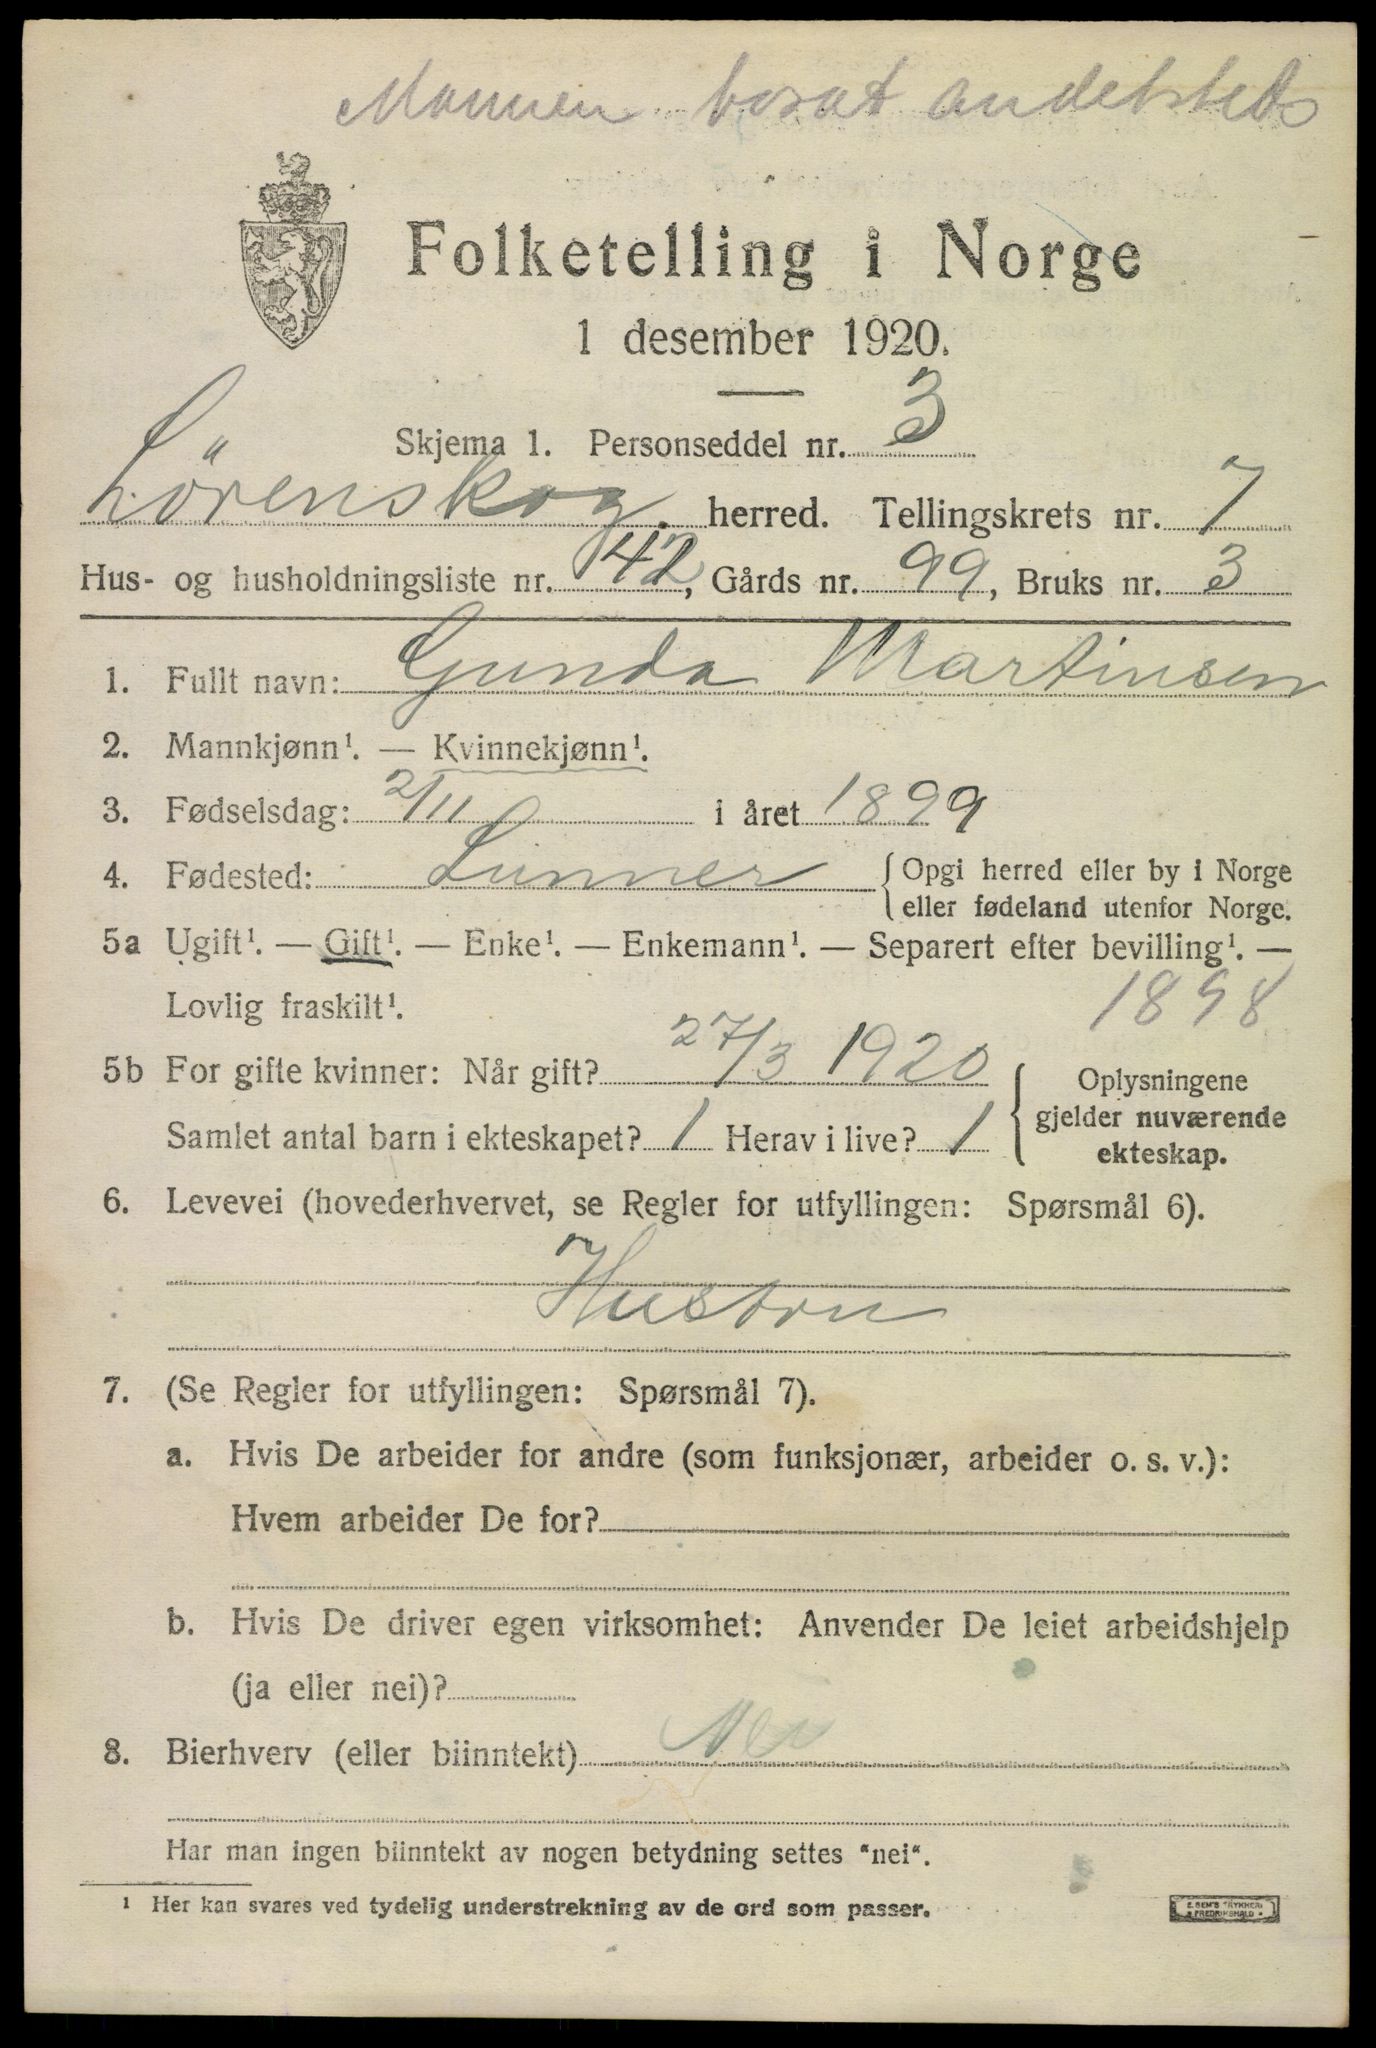 Mannen bosat andetsteds
Folketelling i Norge
1 desember 1920.
Skjema 1. Personseddel nr. 3
Lörenskog. herred. Tellingskrets nr. 7
Hus- og husholdningsliste nr. 42, Gårds nr. 99, Bruks nr. 3
1. Fullt navn: Gunda Martinsen
2. Mannkjønn¹. — Kvinnekjønn¹.
3. Fødselsdag: 2/11 i året 1899
4. Fødested: Lunner { Opgi herred eller by i Norge
eller fødeland utenfor Norge.
5a Ugift¹. — Gift¹. — Enke¹. — Enkemann¹. — Separert efter bevilling¹. —
Lovlig fraskilt¹. 1898
5b For gifte kvinner: Når gift? 27/3 1920
Samlet antal barn i ekteskapet? 1 Herav i live? 1
{ Oplysningene
gjelder nuværende
ekteskap.
6. Levevei (hovederhvervet, se Regler for utfyllingen: Spørsmål 6).
Hustru
7. (Se Regler for utfyllingen: Spørsmål 7).
a. Hvis De arbeider for andre (som funksjonær, arbeider o. s. v.):
Hvem arbeider De for?
b. Hvis De driver egen virksomhet: Anvender De leiet arbeidshjelp
(ja eller nei)?
8. Bierhverv (eller biinntekt) Nei
Har man ingen biinntekt av nogen betydning settes "nei".
¹ Her kan svares ved tydelig understrekning av de ord som passer.
E. SEM'S TRYKKERI
FREDRIKSHALD